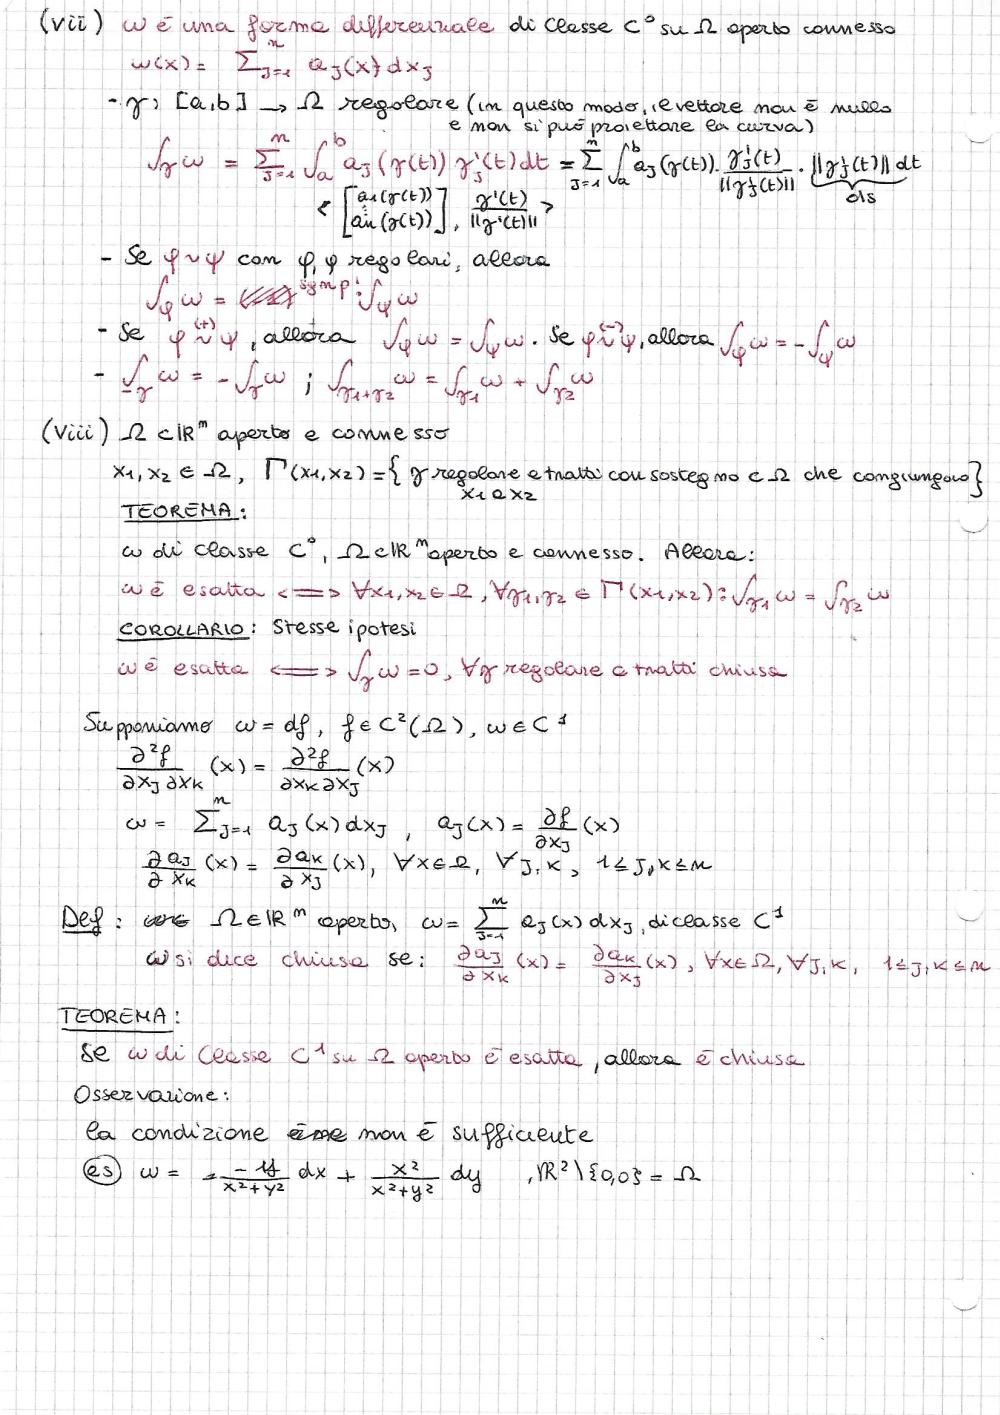 (vii) ω è una forma differenziale di classe C° su Ω aperto connesso
ω(x) = Σ_{J=1}^{n} a_J(x) dx_J
- γ: [a,b] → Ω regolare (in questo modo, il vettore non è nullo
e non si può proiettare la curva)
∫_γ ω = Σ_{J=1}^{n} ∫_a^b a_J(γ(t)) γ'_J(t) dt = Σ_{J=1}^{n} ∫_a^b a_J(γ(t)) · γ'_J(t)/||γ'_J(t)|| · ||γ'_J(t)|| dt
ds
< [a_1(γ(t)) a_n(γ(t))], γ'(t)/||γ'(t)|| >
- Se φ ~ ψ con φ, φ regolari, allora
∫_φ ω = sgn p' · ∫_ψ ω
- Se φ ~^{(+)} ψ, allora ∫_φ ω = ∫_ψ ω. Se φ ~^{(-)} ψ, allora ∫_φ ω = -∫_ψ ω
- ∫_{-γ} ω = -∫_γ ω ; ∫_{γ1+γ2} ω = ∫_{γ1} ω + ∫_{γ2} ω
(viii) Ω ⊂ ℝ^n aperto e connesso
x1, x2 ∈ Ω, Γ(x1,x2) = { γ regolare a tratti con sostegno ⊂ Ω che congiungono}
x1 a x2
TEOREMA:
ω di classe C°, Ω ⊂ ℝ^n aperto e connesso. Allora:
ω è esatta <=> ∀x1,x2 ∈ Ω, ∀γ1,γ2 ∈ Γ(x1,x2): ∫_{γ1} ω = ∫_{γ2} ω
COROLLARIO: Stesse ipotesi
ω è esatta <=> ∫_γ ω = 0, ∀γ regolare a tratti chiusa
Supponiamo ω = df, f ∈ C²(Ω), ω ∈ C¹
∂²f/∂x_J ∂x_K (x) = ∂²f/∂x_K ∂x_J (x)
ω = Σ_{J=1}^{n} a_J(x) dx_J, a_J(x) = ∂f/∂x_J (x)
∂a_J/∂x_K (x) = ∂a_K/∂x_J (x), ∀x ∈ Ω, ∀J,K, 1≤J,K≤n
Def: Ω ∈ ℝ^n aperto, ω = Σ_{J=1}^{n} a_J(x) dx_J, di classe C¹
ω si dice chiusa se: ∂a_J/∂x_K (x) = ∂a_K/∂x_J (x), ∀x ∈ Ω, ∀J,K, 1≤J,K≤n
TEOREMA:
Se ω di classe C¹ su Ω aperto è esatta, allora è chiusa
Osservazione:
la condizione non è sufficiente
(es) ω = -y/x²+y² dx + x²/x²+y² dy , ℝ² \ {0,0} = Ω